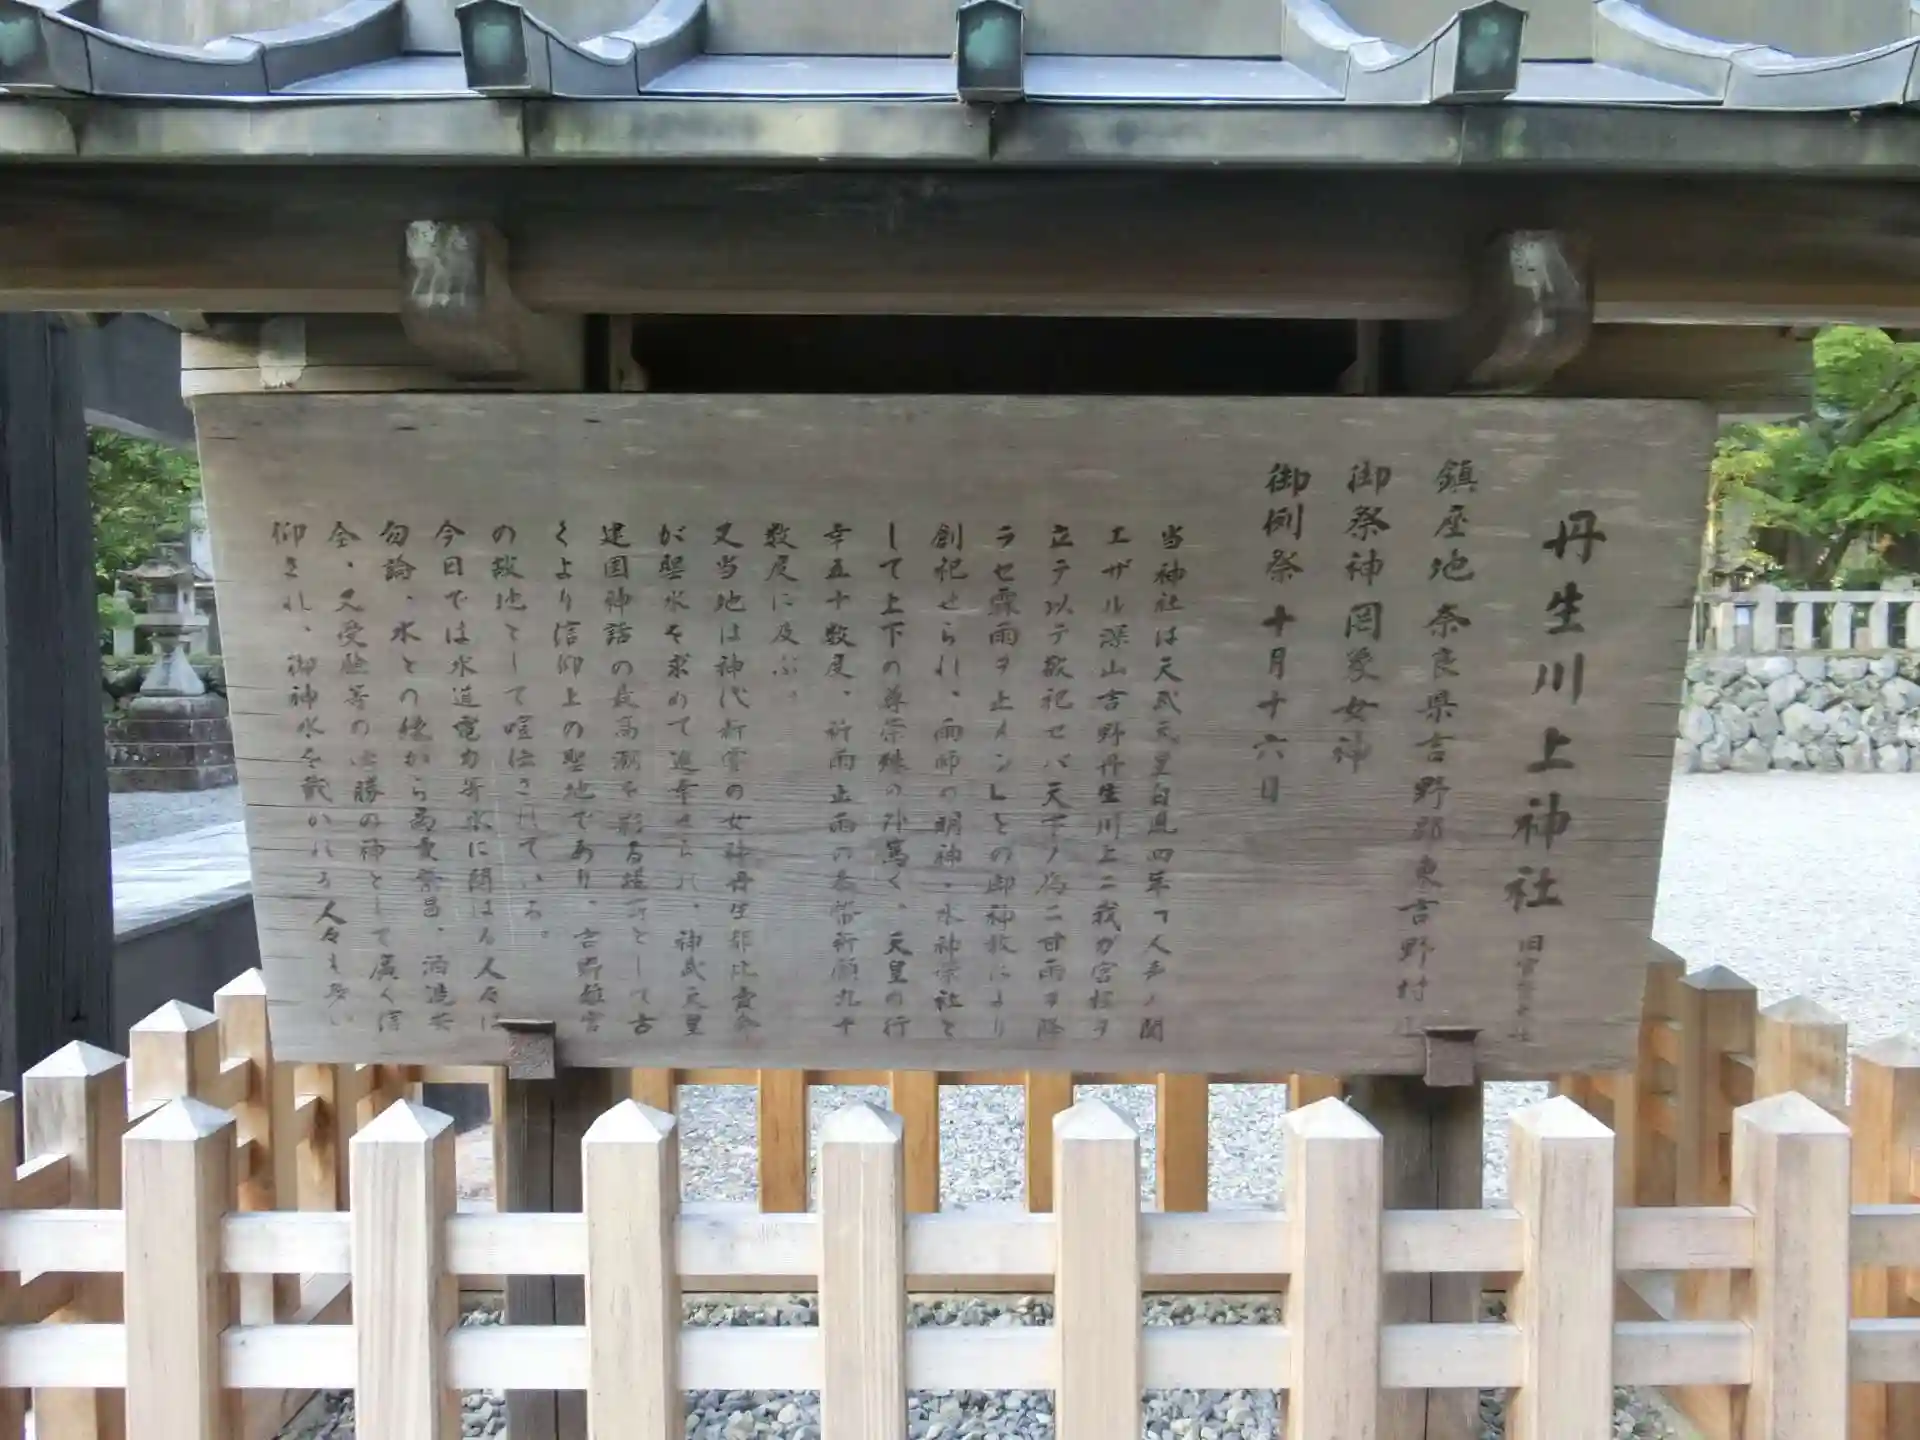 丹生川上神社 旧官幣大社
鎮座地 奈良県吉野郡東吉野村
御祭神 罔象女神
御例祭 十月十六日
当神社は天武天皇白鳳四年「人声ノ聞
エザル深山吉野丹生川上ニ我ガ宮柱ヲ
立テ以テ敬祀セバ天下ノ為ニ甘雨ヲ降
ラセ霖雨ヲ止メン」との御神教により
創祀せられ、雨師の明神、水神宗社と
して上下の尊崇殊の外篤く、天皇の行
幸五十数度、祈雨止雨の奉幣祈願九十
数度に及ぶ。
又当地は神代
の女神丹生都比売命
が聖水を求めて進幸せられ、神武天皇
建国神話の最高潮を
る場所として古
くより信仰上の聖地であり、吉野離宮
の故地として喧伝されている。
今日では水道電力等水に関はる人々は
勿論、水との縁から商売繁昌、酒造安
全、又受験等の必勝の神として広く信
仰され、御神水を戴かれる人々も多い